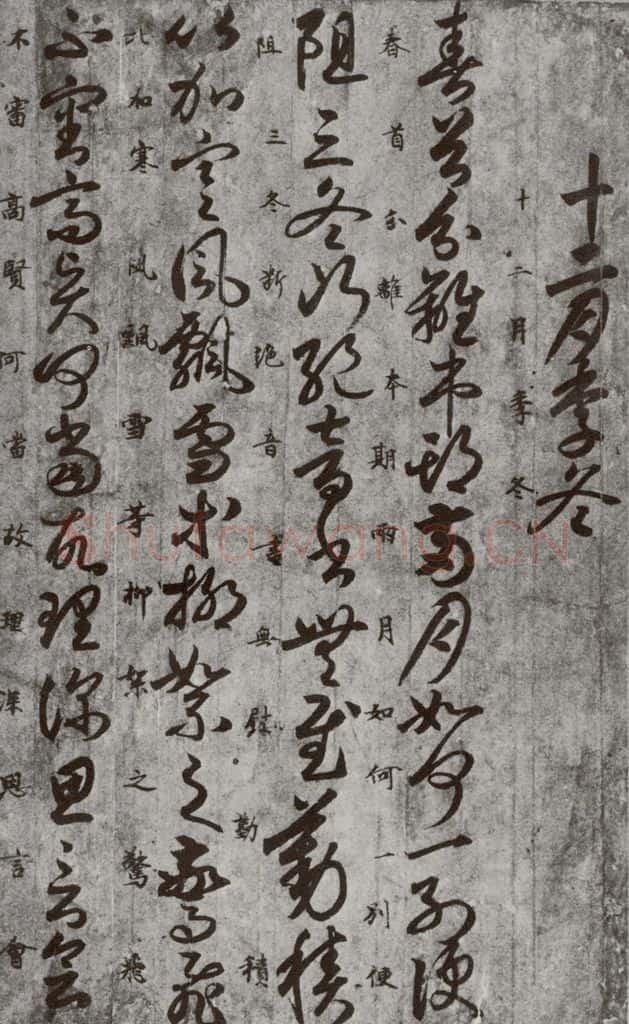 十二月季冬
十二月季冬
春首分離本期兩月如何一別便
春首分離本期兩月如何一別便
阻三冬断絶音書無慰勤積
阻三冬断絶音書無慰勤積
比加寒風飄雪等柳絮之驚飛
比加寒風飄雪等柳絮之驚飛
不審高賢何當故理深思言會
不審高賢何當故理深思言會
Shufawang.CN